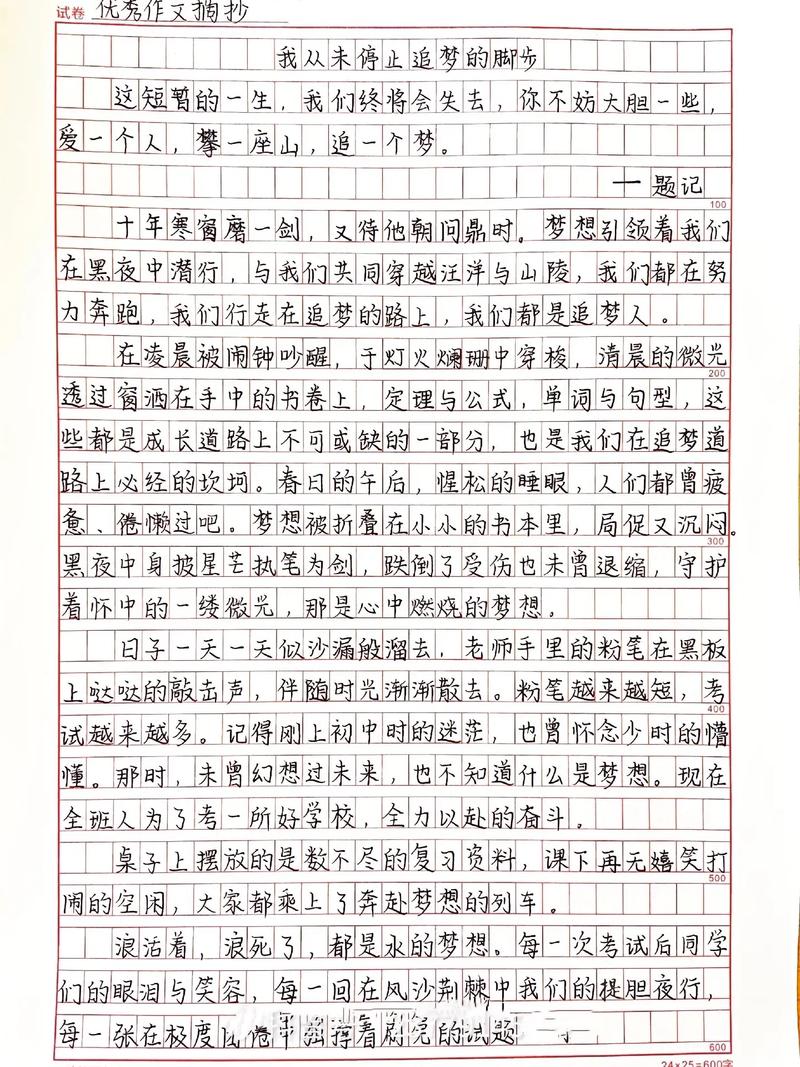 试卷 优秀作文摘抄
我从未停止追梦的脚步
这短暂的一生，我们终将会失去，你不妨大胆一些，
爱一个人，攀一座山，追一个梦。
一题记
100
十年寒窗磨一剑，又待他朝问鼎时。梦想引领着我们
在黑夜中潜行，与我们共同穿越汪洋与山陵，我们都在努
力奔跑，我们行走在追梦的路上，我们都是追梦人。
在凌晨被闹钟吵醒，于灯火斓珊中穿梭，清晨的微光
200
透过窗洒在手中的书卷上，定理与公式，单词与句型，这
些都是成长道路上不可或缺的一部分，也是我们在追梦道
路上必经的坎坷。春日的午后，惺松的睡眼，人们都曾疲
惫、倦懒过吧。梦想被折叠在小小的书本里，局促又沉闷。
300
黑夜中身披星芒执笔为剑，跌倒了受伤也未曾退缩，守护
着怀中的一缕微光，那是心中燃烧的梦想。
日子一天一天似沙漏般溜去，老师手里的粉笔在黑板
上哒哒的敲击声，伴随时光渐渐散去。粉笔越来越短，考
400
试越来越多。记得刚上初中时的迷茫，也曾怀念少时的懵
懂。那时，未曾幻想过未来，也不知道什么是梦想。现在
全班人为了考一所好学校，全力以赴的奋斗。
桌子上摆放的是数不尽的复习资料，课下再无嬉笑打
500
闹的空闲，大家都乘上了奔赴梦想的列车。
浪活着，浪死了，都是水的梦想。每一次考试后同学
们的眼泪与笑容，每一回在风沙荆棘中我们的提胆夜行，
每一张在极度困倦中强撑着做完的试题
600
24×25=600字